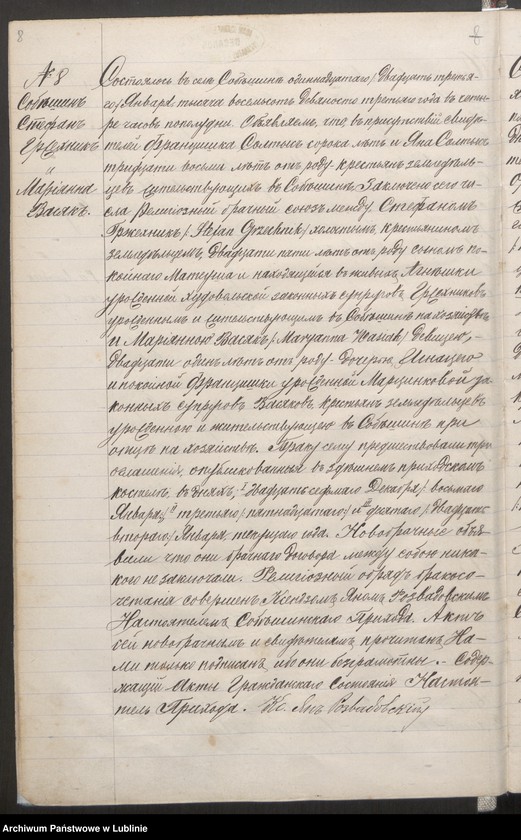 8
8
№ 8
Собѣшинъ
Стефанъ
Гржехникъ
и
Маріанна
Васакъ.
Состоялось въ селѣ Собѣшинѣ одиннадцатаго/ двадцать третья-
го/ Января тысяча восемьсотъ девяносто третьяго года въ четы-
ре часовъ пополудни. Объявляемъ, что въ присутствіи свидѣ-
телей Францишка Солтыса сорока лѣтъ и Яна Солтыса
тридцати восьми лѣтъ отъ роду крестьянъ земледѣль-
цевъ жительствующихъ въ Собѣшинѣ. Заключенъ сего чи-
сла религіозный брачный союзъ между Стефаномъ
Гржехникъ/ Stefan Grzechnik/ холостымъ, крестьяниномъ
земледѣльцемъ, двадцати пяти лѣтъ отъ роду сыномъ по-
койнаго Матеуша и находящейся въ живыхъ Агнешки
урожденной Худовольской законныхъ супруговъ Гржехниковъ
урожденнымъ и жительствующимъ въ Собѣшинѣ на хозяйствѣ
и Маріанною Васакъ/ Maryanna Wasak/ дѣвицею,-
двадцати одинъ лѣтъ отъ роду. Дочерью Игнацего
и покойной Францишки урожденной Марценковой за-
конныхъ супруговъ Васаковъ, крестьянъ земледѣльцевъ
урожденною и жительствующею въ Собѣшинѣ при
отцѣ на хозяйствѣ. Браку сему предшествовали три
оглашенія, опубликованныя въ здѣшнемъ приходскомъ
костелѣ въ дняхъ, I двадцать седьмаго Декабря/ восьмаго
Января, II третьяго/ пятнадцатаго/ и III десятаго/ двадцать
втораго/ Января текущаго года. Новобрачные объя-
вили что они брачнаго договора между собою ника-
кого не заключали. Религіозный обрядъ бракосо-
четанія совершенъ Ксендзомъ Яномъ Розвадовскимъ
Настоятелемъ Собѣшинскаго Прихода. Актъ
сей новобрачнымъ и свидѣтелямъ прочитанъ, На-
ми только подписанъ, ибо они безграмотны. - Содер-
жащій Акты Гражданскаго Состоянія Настоя-
тель Прихода. Кс. Янъ Розвадовскій
Archiwum Państwowe w Lublinie